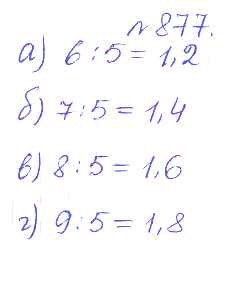 № 877.
а) 6 : 5 = 1,2
б) 7 : 5 = 1,4
в) 8 : 5 = 1,6
г) 9 : 5 = 1,8